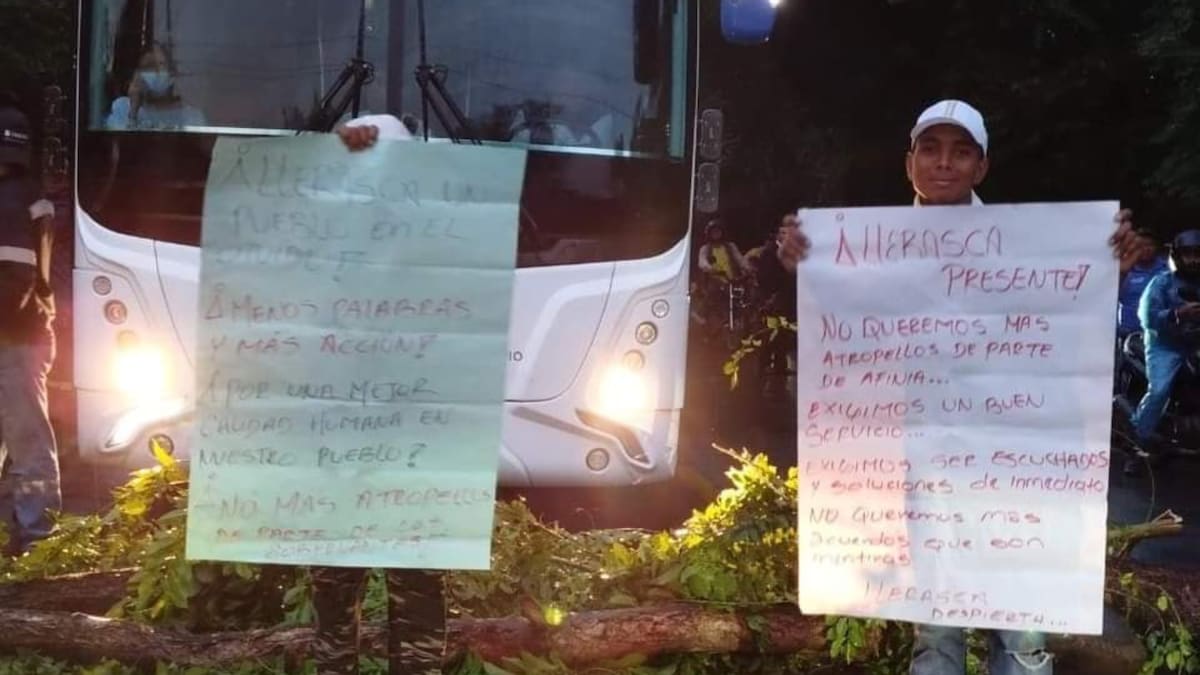 ¡LLERASCA UN
PUEBLO EN EL
¡MENOS PALABRAS
Y MÁS ACCION!
¡POR UNA MEJOR
CALIDAD HUMANA EN
NUESTRO PUEBLO!
¡
NO MAS ATROPELLOS
DE PARTE DE LOS
¡LLERASCA
PRESENTE!
NO QUEREMOS MAS
ATROPELLOS DE PARTE
DE AFINIA...
EXIGIMOS UN BUEN
SERVICIO...
EXIGIMOS SER ESCUCHADOS
Y SOLUCIONES DE INMEDIATO
NO QUEREMOS MÁS
ACUERDOS QUE SON
MENTIRAS
LLERASCA
DESPIERTA...